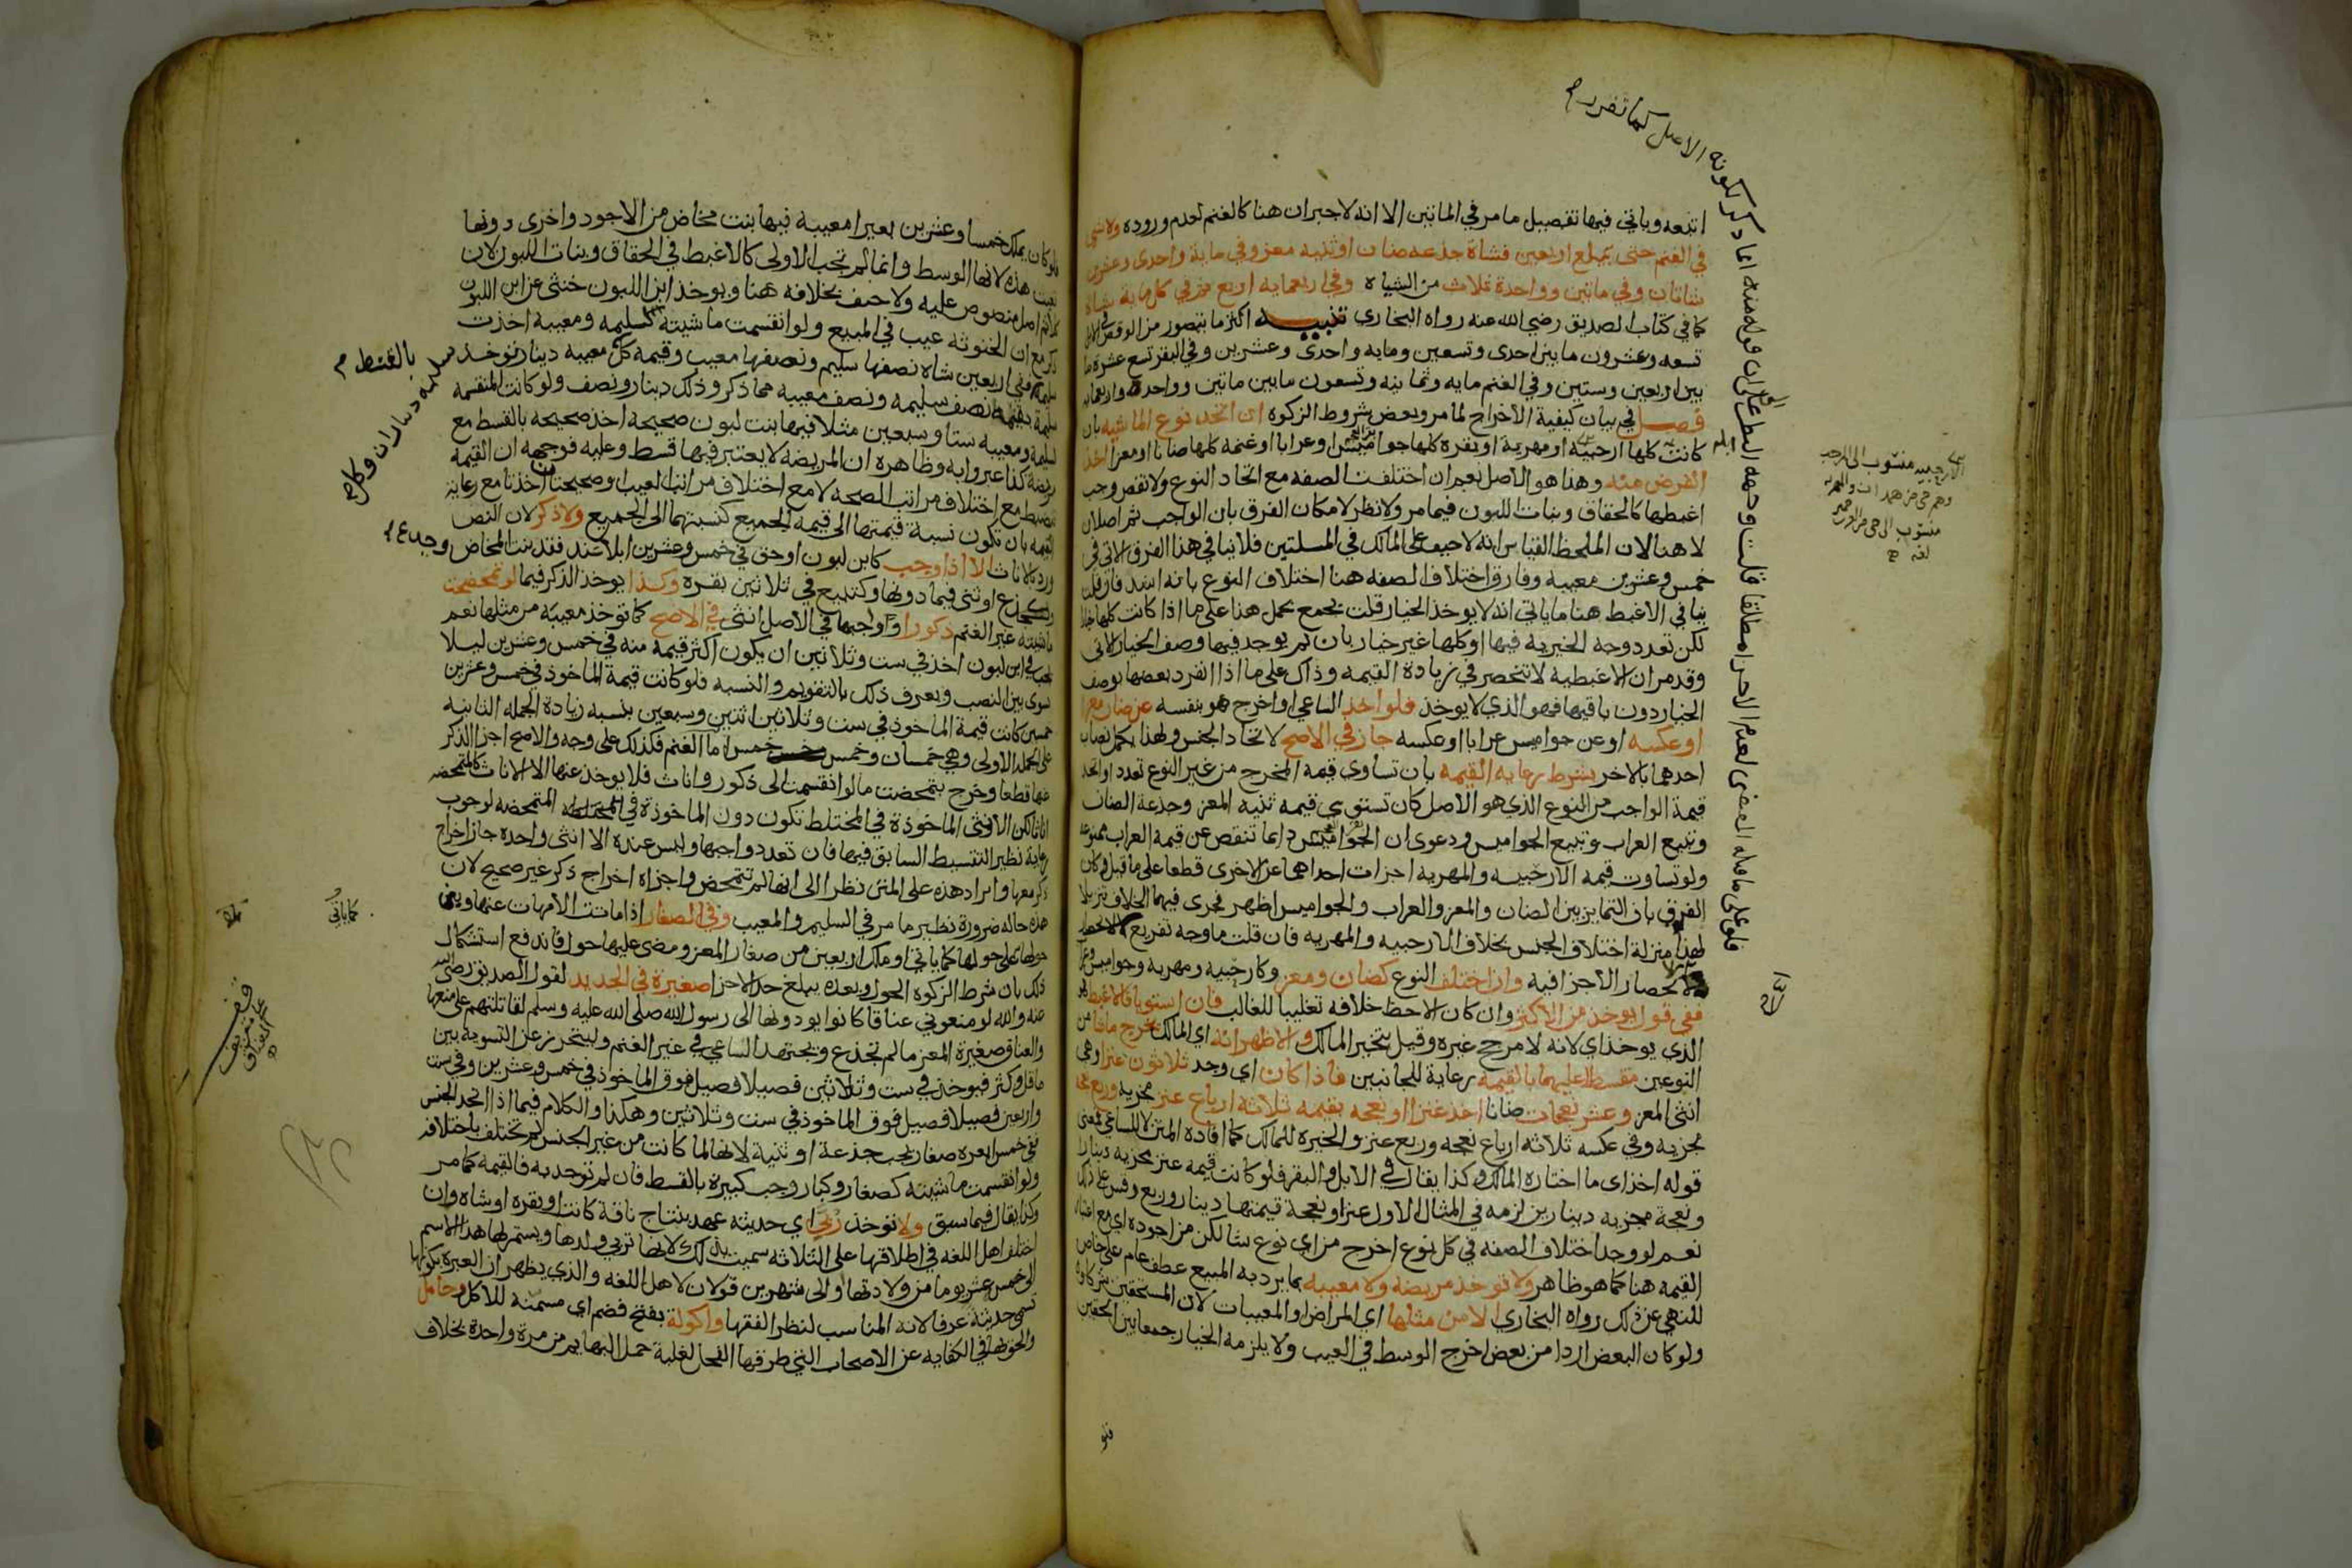 اتبعه وياتي فيها تفصيل ما مر في الماتين الا انه لا جبران هنا كالغنم لعدم وروده ولا شي
في الغنم حتى يبلغ اربعين فشاة جذعه ضان او ثنيه معز وفي ماية واحدى وعشرين
شاتان وفي ماتين وواحدة ثلاث من الشياه وفي اربعمايه اربع ثم في كل ماية شاة
كما في كتاب الصديق رضي الله عنه رواه البخاري تنبيه اكثر ما يتصور من الوقص في الابل
تسعه وعشرون ما بين احدى وتسعين ومايه واحدى وعشرين وفي البقر تسع عشرة ما
بين اربعين وستين وفي الغنم مايه وثمانيه وتسعون ما بين ماتين وواحدة واربعمايه
فصل في بيان كيفية الاخراج لما مر وبعض شروط الزكوه ان اتحد نوع الماشيه بان
كانت كلها ارحبيه او مهرية او بقره كلها جواميس او عرابا او غنمه كلها ضانا او معزا اخذ
الفرض منه وهذا هو الاصل نعم ان اختلفت الصفه مع اتحاد النوع ولا نقص وجب
اغبطها كالحقاق وبنات اللبون فيما مر ولا نظر لامكان الفرق بان الواجب ثم اصلان
لا هنا لان الملحظ القياس انه لا حيف على المالك في المسلتين فلا ينافي هذا الفرق الاتي في
خمس وعشرين معيبه وفارق اختلاف الصفه هنا اختلاف النوع بانه اشد فان قلت
ينافي الاغبط هنا ما ياتي انه لا يوخذ الخيار قلت يجمع بحمل هنا على ما اذا كانت كلها خيارا
لكن تعدد وجه الخيريه فيها او كلها غير خيار بان لم يوجد فيها وصف الخيار الاتي
وقد مر ان الاغبطيه لا تنحصر في زيادة القيمه وذاك على ما اذا انفرد بعضها بوصف
الخيار دون باقيها فهو الذي لا يوخذ فلو اخذ الساعي او اخرج هو بنفسه عن ضان معزا
او عكسه او عن جواميس عرابا او عكسه جاز في الاصح لاتحاد الجنس ولهذا يكمل نصاب
احدهما بالاخر بشرط رعايه القيمه بان تساوي قيمة المخرج من غير النوع تعدد او اتحد
قيمة الواجب من النوع الذي هو الاصل كان تستوي قيمه ثنيه المعز وجذعة الضان
وتبيع العراب وتبيع الجواميس ودعوى ان الجواميس دايما تنقص عن قيمة العراب ممنوعه
ولو تساوت قيمه الارحبيه والمهرية اجزات احداهما عن الاخرى قطعا على ما قيل وكان
الفرق بان التمايز بين الضان والمعز والعراب والجواميس اظهر فجرى فيهما الخلاف تنزيلا
لهذا منزلة اختلاف الجنس بخلاف الارحبيه والمهريه فان قلت ما وجه تفريع
الانحصار الاجزا فيه وان اختلف النوع كضان ومعز وكارحبيه ومهرية وجواميس وعراب
ففي قول يوخذ من الاكثر وان كان الاحظ خلافه تغليبا للغالب فان استويا فالاغبط هو
الذي يوخذ اي لانه لا مرجح غيره وقيل يتخير المالك والاظهر انه اي المالك يخرج ما شا من
النوعين مقسطا عليهما بالقيمه رعاية للجانبين فاذا كان اي وجد ثلاثون عنزا وهي
انثى المعز وعشر نعجات ضانا اخذ عنزا او نعجه بقيمه ثلاثه ارباع عنز مجزيه وربع نعجة
مجزيه وفي عكسه ثلاثه ارباع نعجه وربع عنز والخيره للمالك كما افاده المتن لا للساعي فمعنى
قوله اخذ اي ما اختاره المالك وكذا يقال في الابل والبقر فلو كانت قيمه عنز مجزيه دينارا
ونعجة مجزيه دينارين لزمه في المثال الاول عنز او نعجة قيمتها دينار وربع وقس على ذلك
نعم لو وجد اختلاف الصفه في كل نوع اخرج من اي نوع شا لكن من اجوده اي مع اعتبار
القيمه هنا كما هو ظاهر ولا توخذ مريضه ولا معيبه بما يرد به المبيع عطف عام على خاص
للنهي عن ذلك رواه البخاري الا من مثلها اي المراض او المعيبات لان المستحقين شركاوه
ولو كان البعض اردا من بعض اخرج الوسط في العيب ولا يلزمه الخيار جمعا بين الحقين
فلو
فلو على ما قاله البعض لعدم الاجزا مطلقا قلت وجهه النظر على ان قوله منه انما ذكر لكونه الاصل كما تقرر
الارحبيه منسوب الى ارحب
وهم حي من همدان والمهريه
منسوب الى حي من
لغه
فلو كان يملك خمسا وعشرين بعيرا معيبة فيها بنت مخاض من الاجود واخرى دونها
تعينت هذه لانها الوسط وانما لم تجب الاولى كالاغبط في الحقاق وبنات اللبون لان
كلا ثم اصل منصوص عليه ولا حيف بخلافه هنا ويوخذ ابن اللبون خنثى عن ابن اللبون
ذكر مع ان الخنوثة عيب في المبيع ولو انقسمت ماشيته لسليمه ومعيبه اخذت
سليمة ففي اربعين شاه نصفها سليم ونصفها معيب وقيمة كل معيبه دينار توخذ سليمه ديناران وكل
بالقسط
سليمة بقيمة نصف سليمه ونصف معيبه مما ذكر وذلك دينار ونصف ولو كانت المنقسمة
لسليمة ومعيبه ستا وسبعين مثلا فيها بنت لبون صحيحة اخذ صحيحه بالقسط مع
مريضة كذا عبروا به وظاهره ان المريضة لا يعتبر فيها قسط وعليه فوجهه ان القيمة
تنضبط مع اختلاف مراتب الصحه لا مع اختلاف مراتب العيب او صحيحتان اخذتا مع رعاية
القيمه بان تكون نسبة قيمتها الى قيمه الجميع كنسبتهما الى الجميع ولا ذكر لان النص
ورد بالاناث الا اذا وجب كابن لبون او حق في خمس وعشرين ابلا عند فقد بنت المخاض وجذع
او ثني فيما دونها وكتبيع في ثلاثين بقره وكذا يوخذ الذكر فيما لو تمحضت
ماشيته غير الغنم ذكورا وواجبها في الاصل انثى في الاصح كما توخذ معيبه من مثلها نعم
يجب في ابن لبون اخذ في ست وثلاثين ان يكون اكثر قيمة منه في خمس وعشرين ليلا
يسوى بين النصب ويعرف ذلك بالتقويم والنسبه فلو كانت قيمة الماخوذ في خمس وعشرين
خمسين كانت قيمة الماخوذ في ست وثلاثين اثنين وسبعين بنسبه زيادة الجمله الثانيه
على الجمله الاولى وهي خمسان وخمس خمس اما الغنم فكذلك على وجه والاصح اجزا الذكر
منها قطعا وخرج بتمحضت ما لو انقسمت الى ذكور واناث فلا يوخذ عنها الا الاناث كالمتمحضه
اناثا لكن الانثى الماخوذة في المختلط تكون دون الماخوذة في المتمحضه لوجوب
رعاية نظير التقسيط السابق فيها فان تعدد واجبها وليس عنده الا انثى واحدة جاز اخراج
ذكر معها وايراد هذه على المتن نظرا الى انها لم تتمحض واجزاه اخراج ذكر غير صحيح لان
هذه حاله ضرورة نظير ما مر في السليم والمعيب وفي الصغار اذا ماتت الامهات عنها وبني
حولها على حولها كما ياتي او ملك اربعين من صغار المعز ومضى عليها حول فاندفع استشكال
ذلك بان شرط الزكوة الحول وبعده يبلغ حد الاجزا صغيرة في الجديد لقول الصديق رضي الله
عنه والله لو منعوني عناقا كانوا يودونها الى رسول الله صلى الله عليه وسلم لقاتلتهم على منعها
والعناق صغيرة المعز ما لم تجذع ويجتهد الساعي في غير الغنم وليتحرز عن التسوية بين
ما قل وكثر فيوخذ في ست وثلاثين فصيلا فصيل فوق الماخوذ في خمس وعشرين وفي ست
واربعين فصيلا فصيل فوق الماخوذ في ست وثلاثين وهكذا والكلام فيما اذا اتحد الجنس
ففي خمس ابعرة صغار يجب جذعة او ثنية لانها لما كانت من غير الجنس لم تختلف باختلافه
ولو انقسمت ماشيته كصغار وكبار وجب كبيرة بالقسط فان لم توجد به فالقيمه كما مر
وكذا يقال فيما سبق ولا توخذ ربى اي حديثه عهد بنتاج ناقة كانت او بقره او شاه وان
اختلف اهل اللغه في اطلاقها على الثلاثه سميت بذلك لانها تربي ولدها ويستمر لها هذا الاسم
الى خمس عشر يوما من ولادتها او الى شهرين قولان لاهل اللغه والذي يظهر ان العبرة بكونها
تسمى حديثة عرفا لانه المناسب لنظر الفقها واكولة بفتح فضم اي مسمنه للاكل وحامل
والحق بها في الكفايه عن الاصحاب التي طرقها الفحل لغلبة حمل البهايم من مرة واحدة بخلاف
كما ياتي
قف
على تعريف
العناق